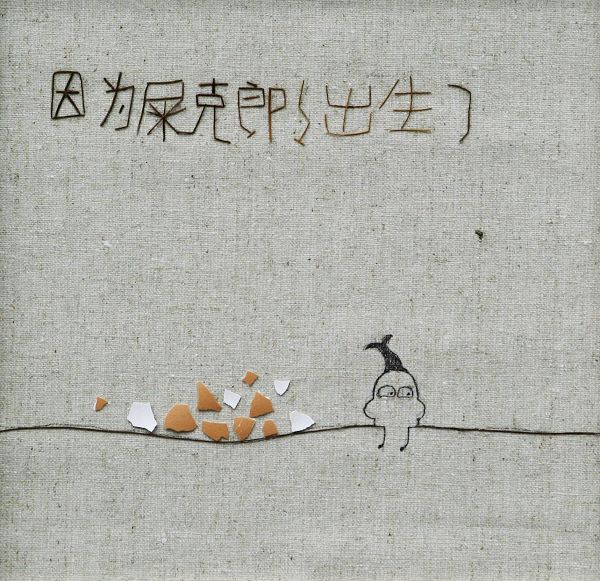 因为屎克郎出生了